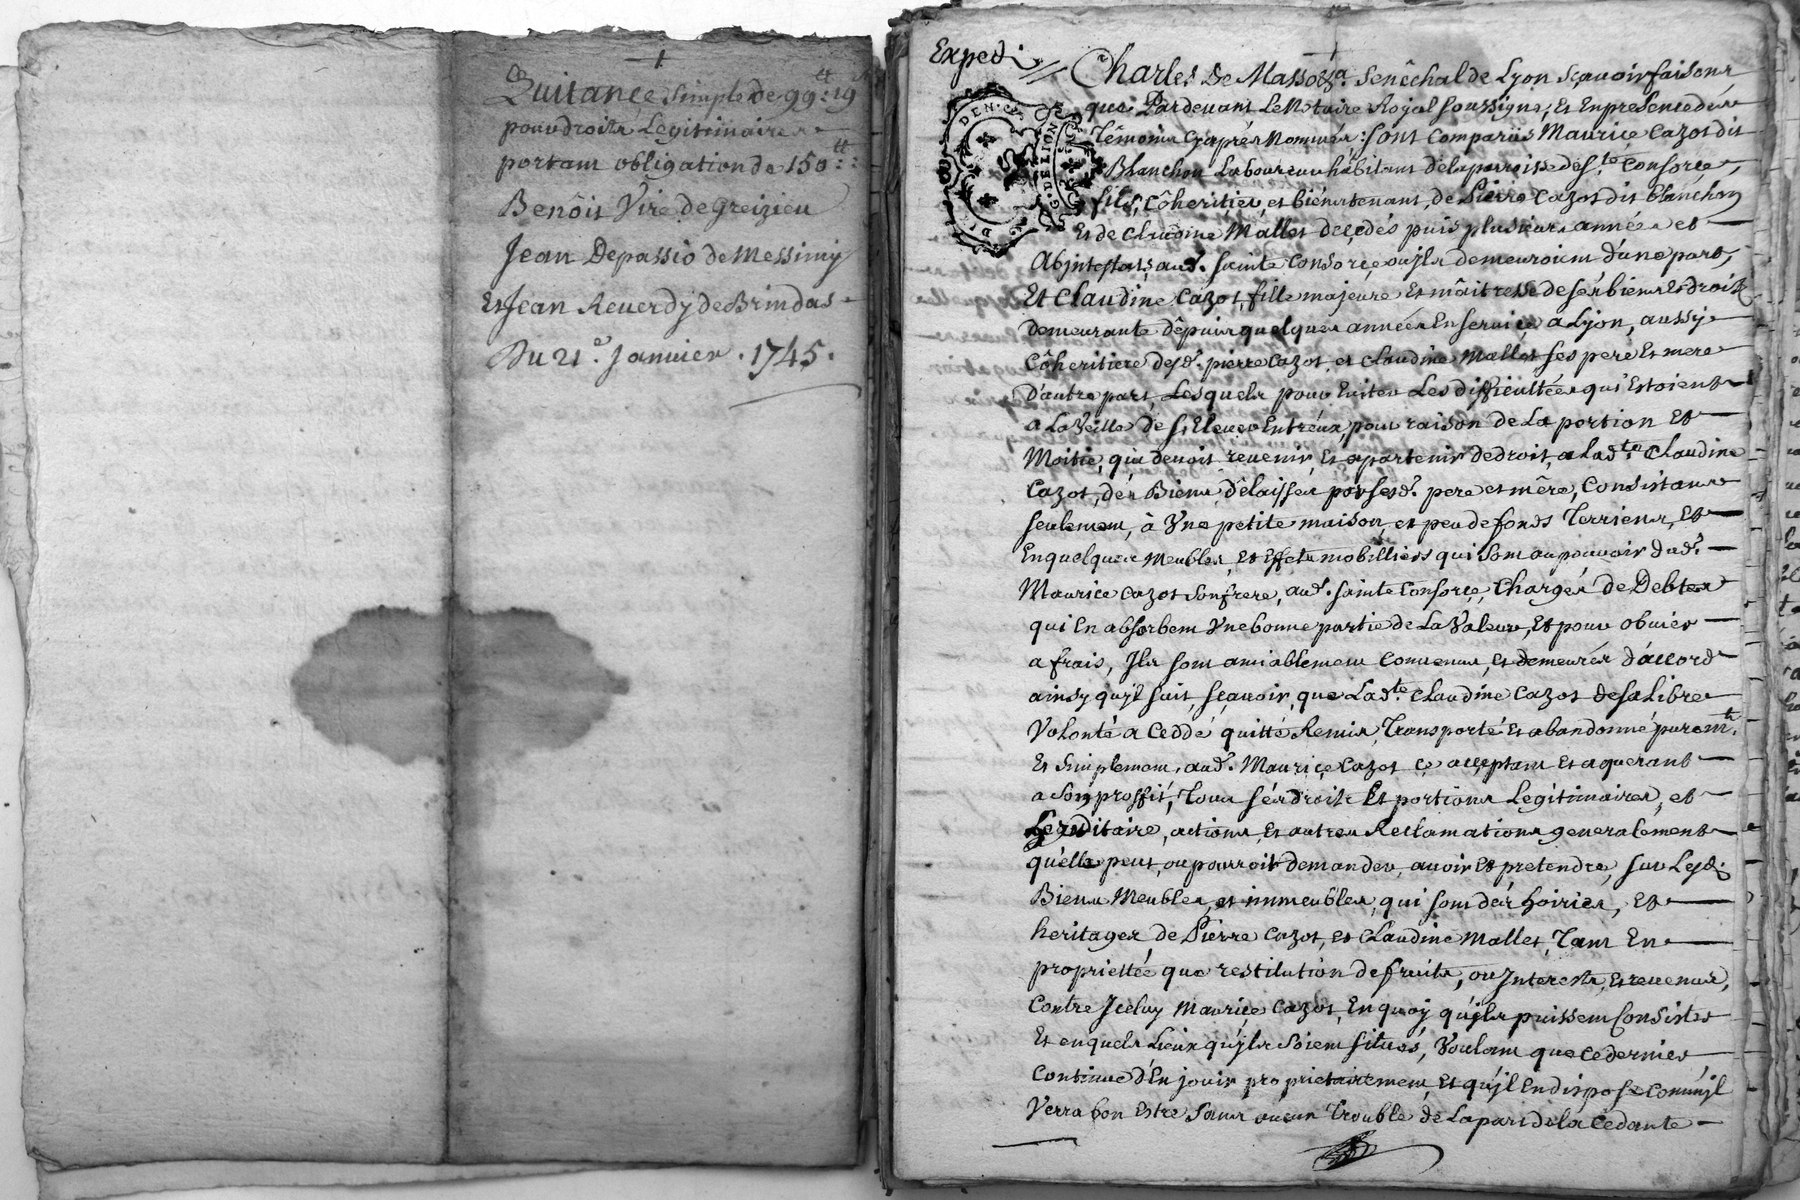 Quitance simple de 99:₶ 19
pour droits Legitimaires
portant obligation de 150₶::
Benôit Viré de Greizieu
Jean Depassio de Messimy
Et Jean Reuerdy de Brindas
Du 21.e Januier . 1745 .
Exped
Charles De Masso &a. Senêchal de Lyon sçauoir faisons
que Pardeuant Le Nottaire Royal soussigné, Et En presence des
Têmoins Cy après Nommés, sont Comparüs Maurice Cazot dit
Blanchon Laboureur habitant de la parroisse de S.te Consorce,
fils, Côheritier, et biên tenant, de Pierre Cazot dit Blanchon
Et de Claudine Mallet deçedés puis plusieurs années et
Abjntestats, aud. sainte Consorçe ou jls demeuroient d'une part,
Et Claudine Cazot, fille majeure Et mâitresse de sés biens Et droits
demeurante dêpuis quelques années En seruice a Lyon, aussy
Côheritiere desd. pierre Cazot, et Claudine Mallet ses pere Et mere
D'autre part, Lesquels pour Euiter Les difficultées qui Estoient
a La Veille de s'Eleuer Entréux, pour raison de La portion Et
Moitié, qui deuoit reuenir, Et apartenir de droit, a Lad.te Claudine
Cazot, dés Biens délaissés par sesd. pere et mêre, Consistants
seulement, à Vne petite maison, et peu de fonds Terriens, Et
En quelques Meubles, Et Effets mobilliers qui sont au pouuoir dud.
Maurice Cazot son frere, aud. sainte Consorçe, Chargés de Debtes
qui En absorbent Vne bonne partie de La Valeur, Et pour obuier
a frais, Jls sont amiablement Conuenus, Et demeurés d'accord
ainsy qu'jl suit, sçauoir, que Lad.te Claudine Cazot de sa Libre
Volonté a Ceddé quitté Remis, Transporté Et abandonné purem.t
Et simplement, aud. Maurice Cazot ce acceptant Et aquerant
a son proffit, Tous sés droits Et portions Legitimaires, et
hereditaire, actions, Et autres Reclamations generalement
qu'elle peut, ou pourroit demander, auoir Et pretendre, sur Lesd.
Biens Meubles, et immeubles, qui sont dés hoiries, Et
heritages de Pierre Cazot, et Claudine Mallet, Tant En
proprietté que restitution de fruits, ou Jnterests, Et reuenus,
Contre Jceluy Maurice Cazot, En quoy qu'jls puissent Consister
Et en quels Lieux qu'jls soient situés, Voulant que ce dernier
Continue d'En jouir proprietairement, Et qu'jl En dispose Comm'jl
Verra bon Estre sans aucun Trouble de La part de la Cedante